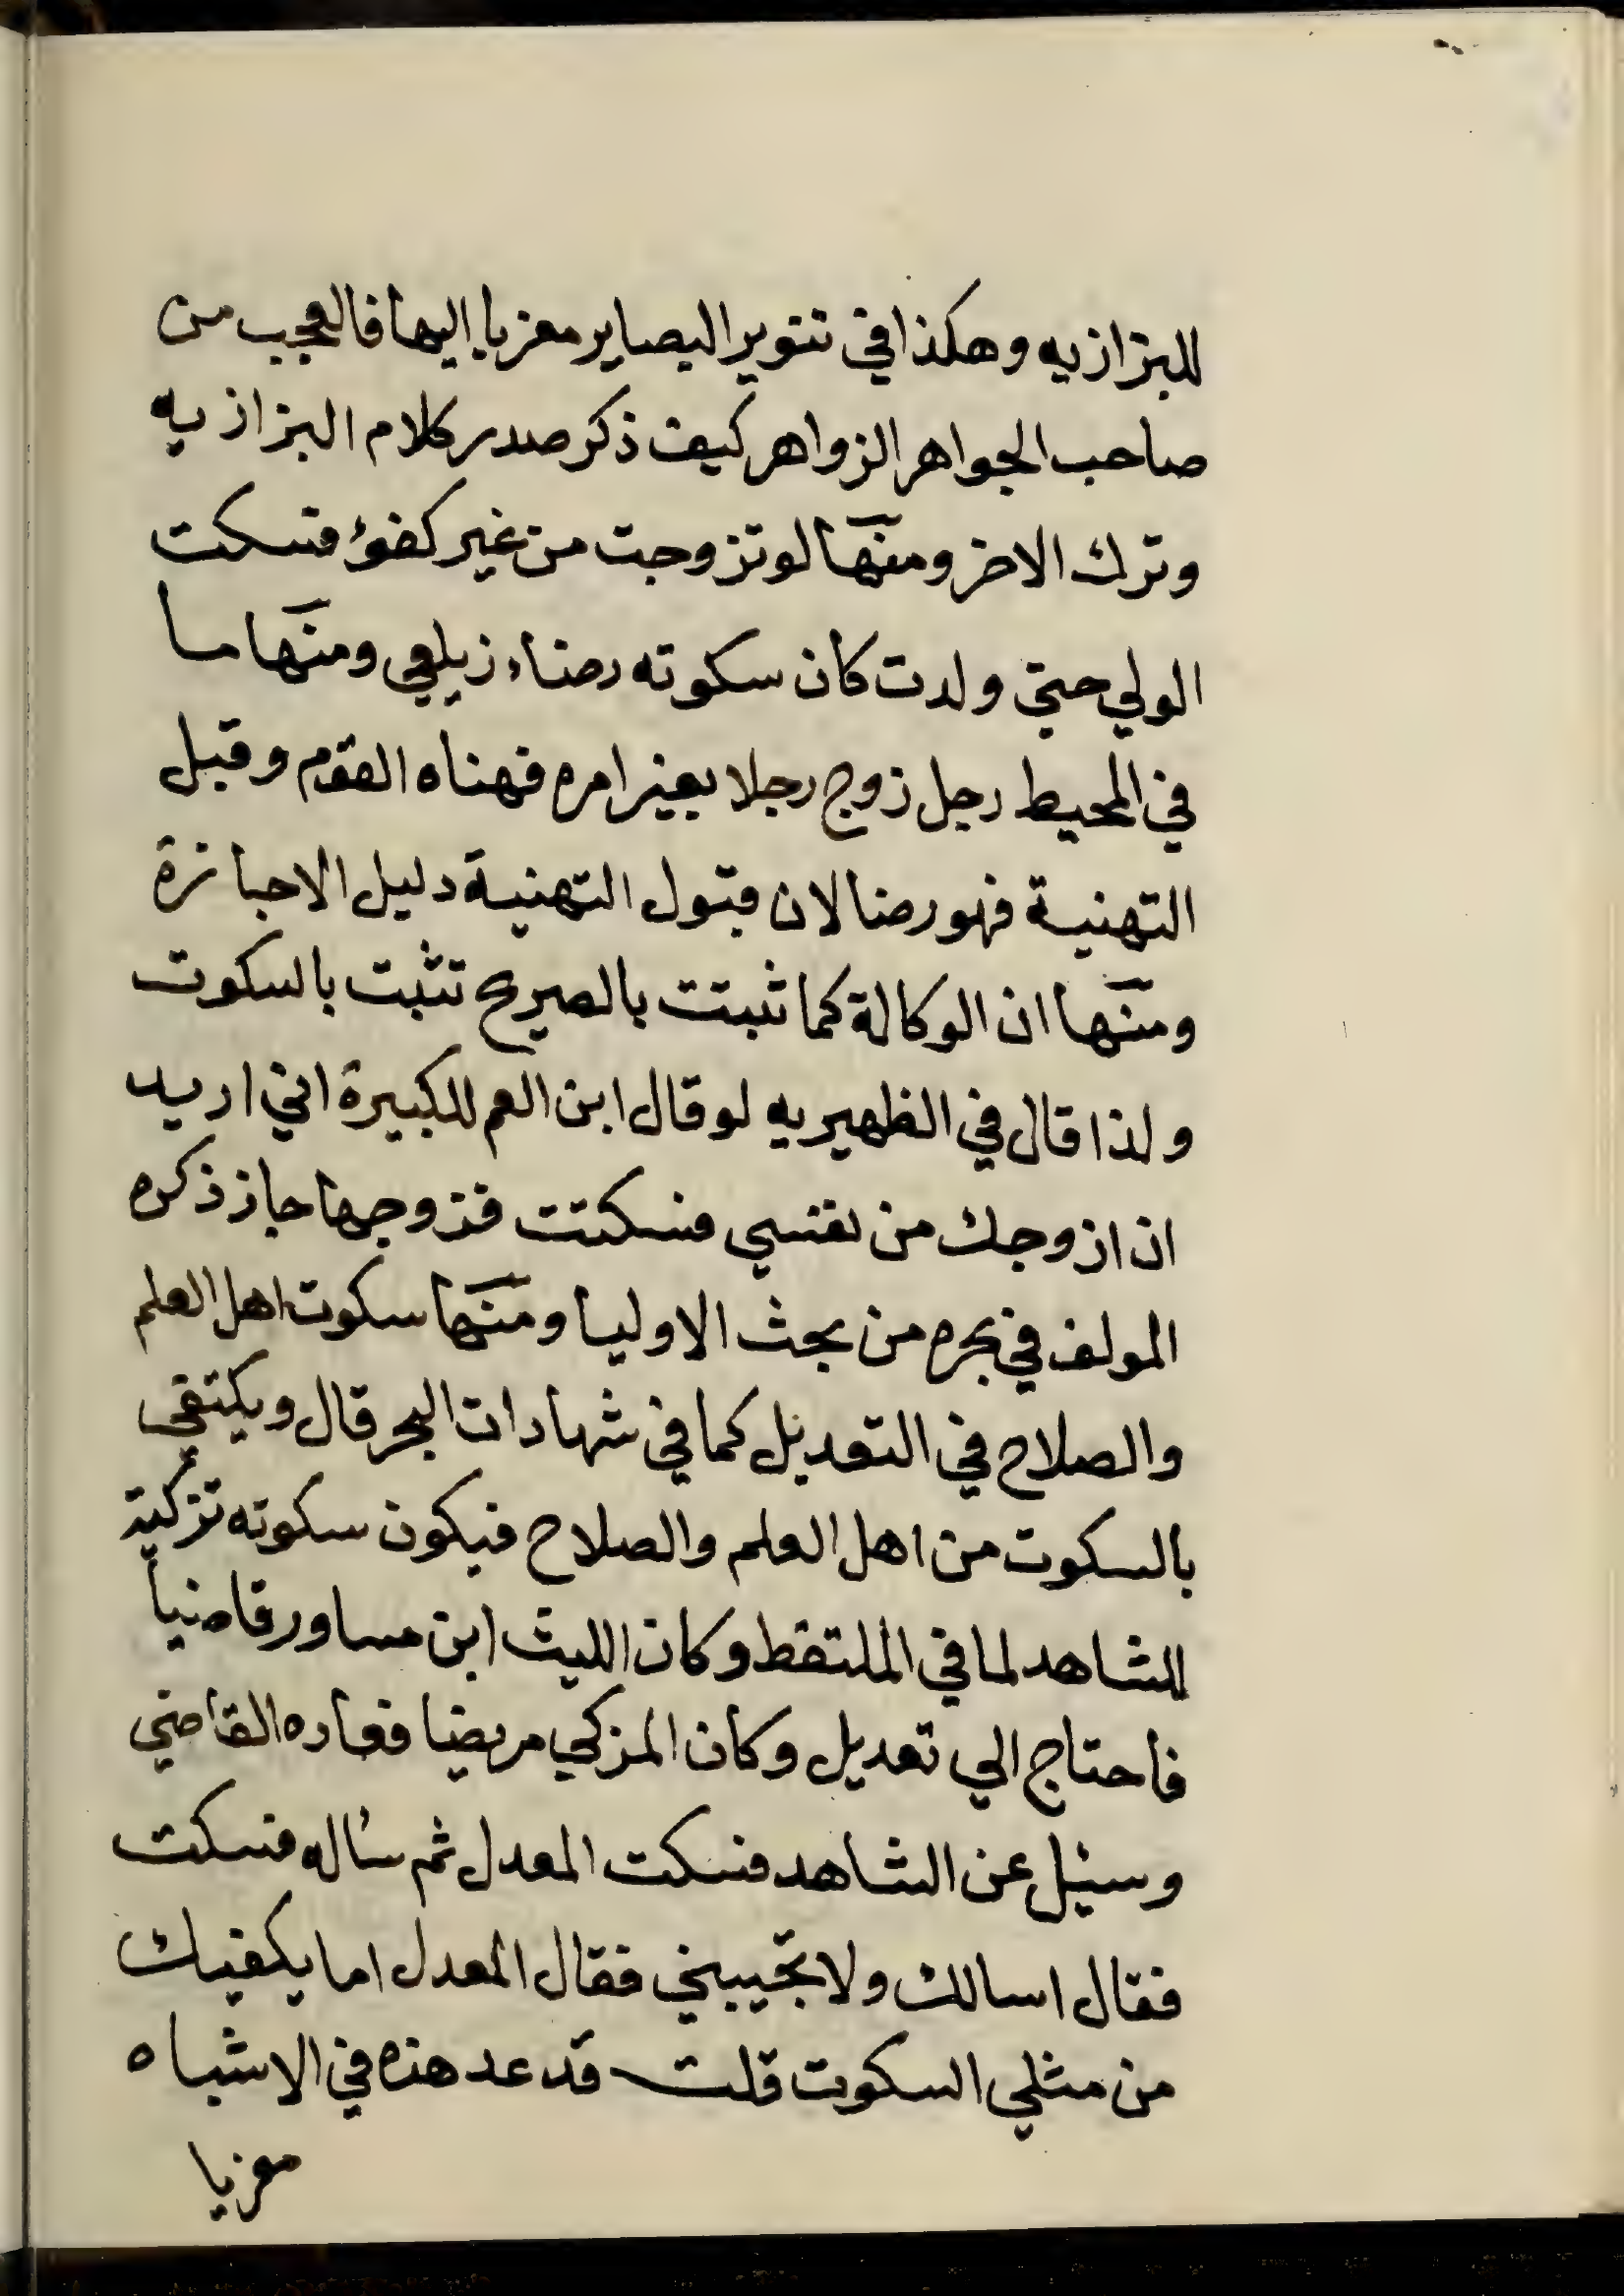 للبزازيه وهكذا في تنوير البصاير معزيا اليها فالعجب من
صاحب الجواهر الزواهر كيف ذكر صدر كلام البزازيه
وترك الاخر ومنها لو تزوجت من غير كفؤ فسكت
الولي حتي ولدت كان سكوته رضاء زيلعي ومنها ما
في المحيط رجل زوج رجلا بغير امره فهناه القوم وقبل
التهنية فهو رضا لان قبول التهنية دليل الاجازة
ومنها ان الوكالة كما ثبتت بالصريح تثبت بالسكوت
ولذا قال في الظهيريه لو قال ابن العم للكبيرة اني اريد
ان ازوجك من نفسي فسكتت فزوجها جاز ذكره
المولف في بحره من بحث الاوليا ومنها سكوت اهل العلم
والصلاح في التعديل كما في شهادات البحر قال ويكتفي
بالسكوت من اهل العلم والصلاح فيكون سكوته تزكية
للشاهد لما في الملتقط وكان الليث ابن مساور قاضيا
فاحتاج الي تعديل وكان المزكي مريضا فعاده القاضي
وسئل عن الشاهد فسكت المعدل ثم سئاله فسكت
فقال اسالك ولا تجيبني فقال المعدل اما يكفيك
من مثلي السكوت قلت قد عد هذه في الاشباه
معزيا